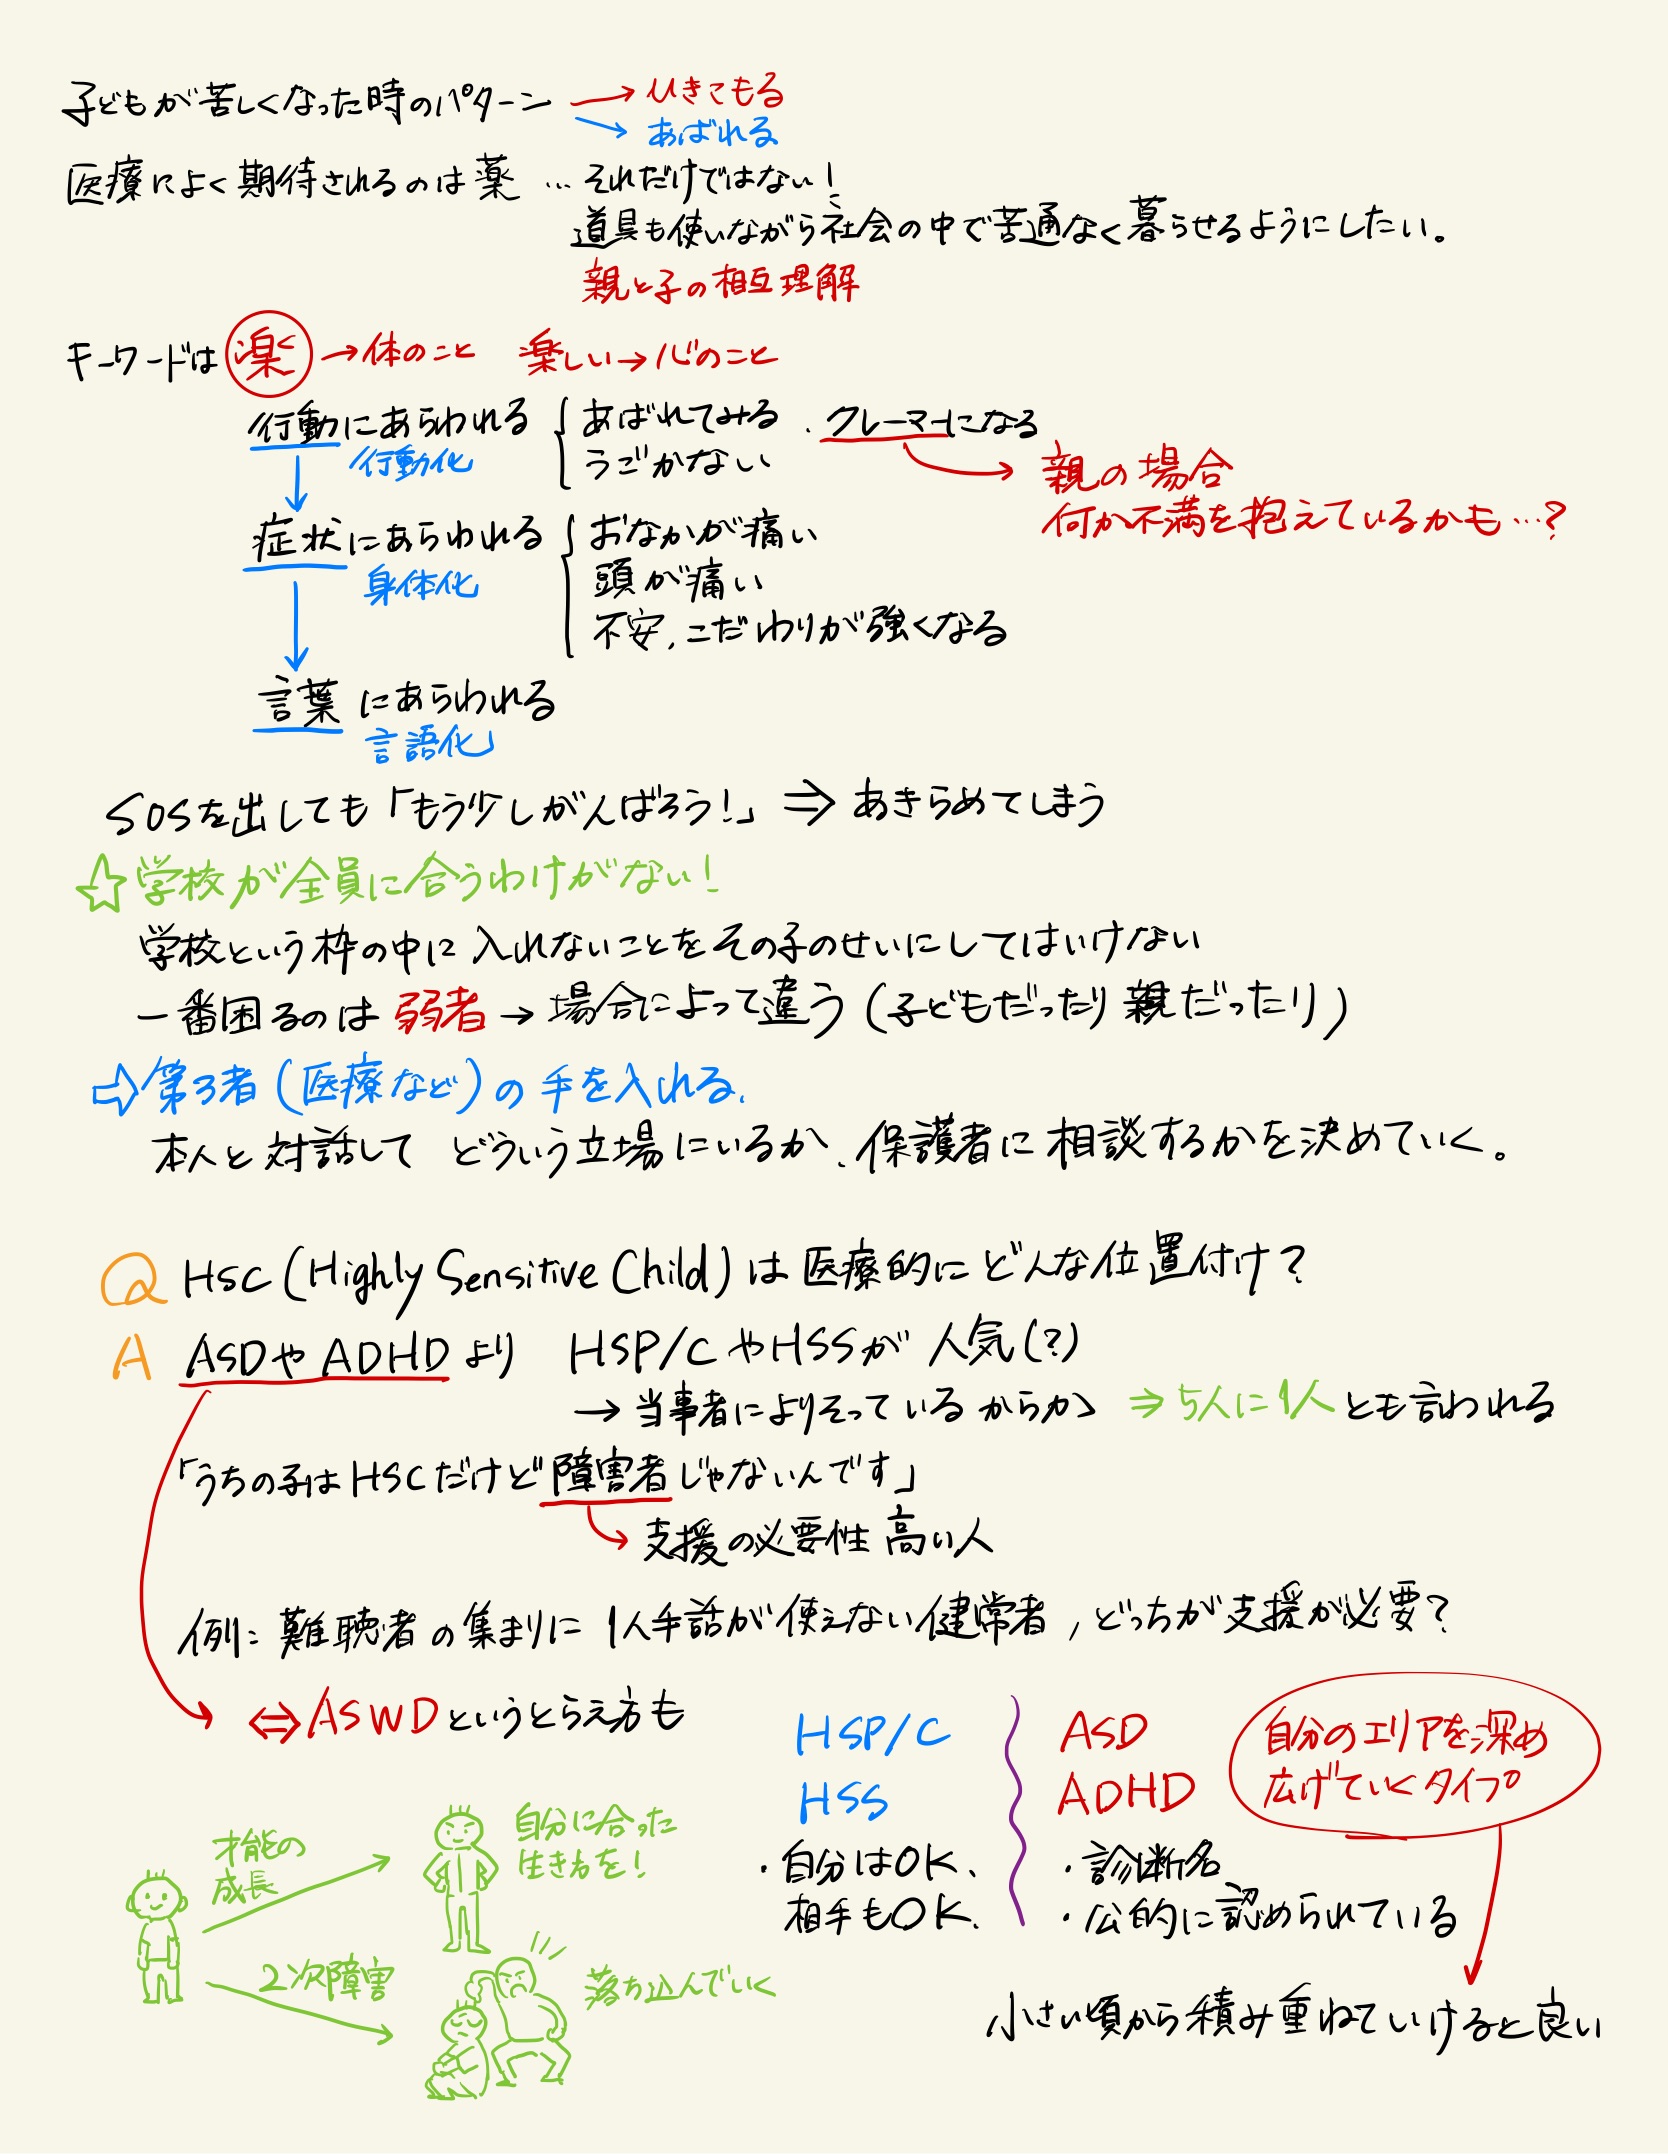 子どもが苦しくなった時のパターン → ひきこもる
→ あばれる
医療によく期待されるのは薬 … それだけではない!
道具も使いながら社会の中で苦痛なく暮らせるようにしたい。
親と子の相互理解
キーワードは 楽 →体のこと 楽しい→心のこと
行動にあらわれる { あばれてみる . クレーマーになる
行動化 うごかない
親の場合
何か不満を抱えているかも…?
症状にあらわれる { おなかが痛い
身体化 頭が痛い
不安, こだわりが強くなる
言葉にあらわれる
言語化
SOSを出しても「もう少しがんばろう!」⇒ あきらめてしまう
☆学校が全員に合うわけがない!
学校という枠の中に入れないことをその子のせいにしてはいけない
一番困るのは弱者→場合によって違う(子どもだったり親だったり)
⇨第3者(医療など)の手を入れる.
本人と対話して どういう立場にいるか、保護者に相談するかを決めていく。
Q HSC(Highly Sensitive Child)は医療的にどんな位置付け?
A ASDやADHDより HSP/CやHSSが人気(?)
→ 当事者によりそっているからか ⇒ 5人に1人とも言われる
「うちの子はHSCだけど障害者じゃないんです」
支援の必要性高い人
例: 難聴者の集まりに1人手話が使えない健常者, どっちが支援が必要?
⇔ASWDというとらえ方も
HSP/C
HSS
・自分はOK、
相手もOK.
ASD
ADHD
・診断名
・公的に認められている
自分のエリアを深め
広げていくタイプ
小さい頃から積み重ねていけると良い
才能の
成長
自分に合った
生き方を!
2次障害
落ち込んでいく